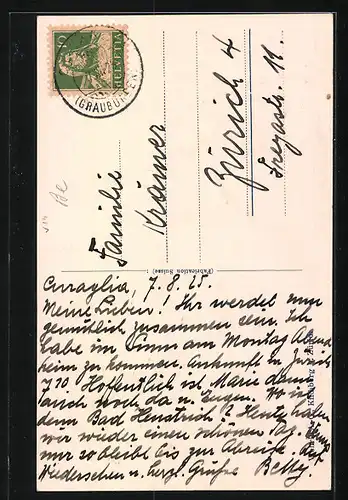 10
HELVETIA
(GRAUBÜNDEN)
Familie
Krämer
Zürich 4
Freyastr. 11.
(Fabrication Suisse)
Curaglia, 7. 8. 25.
Meine Lieben! Ihr werdet nun
gemütlich zusammen sein. Ich
habe im Sinn am Montag Abend
heim zu kommen. Ankunft in Zürich
7 10 Hoffentlich ist Marie dann
auch noch da u. Eugen. Wo ist
denn Bad Heustrich? Heute haben
wir wieder einen schönen Tag. Wenn's
nur so bleibt bis zur Abreise. Auf
Wiedersehen u. herzl. Grüsse Betty.